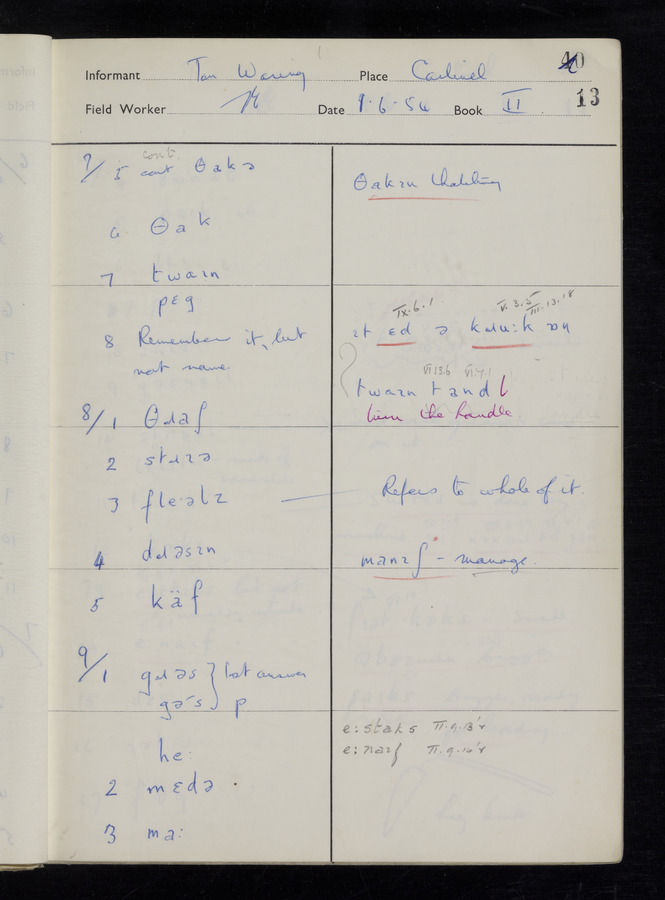 Informant Tom Waring Place Cartmel 40
Field Worker Date 9·6·54 Book II 13
7/5 cont cont. θakə
θakɪn thatching
6 θak
7 twaɪn
pɛg
IX.6.1 V.3.5 III.13.18
8 Remember it, but
not name.
ɪt ɛd ə kɹu:k ɒn
VI.13.6 VI.7.1
twaɪn t and l
Turn the handle
8/1 θɹaʃ
2 stɪɹə
3 fle:əlz
Refers to whole of it.
4 dɹəsɪn
manɪʃ - manage.
5 käf
9/1 gɹəs } last answer
gə·s } p
e:staks II.9.13'r
he: e:naɪʃ II.9.10'r
2 mɛdə
3 ma: